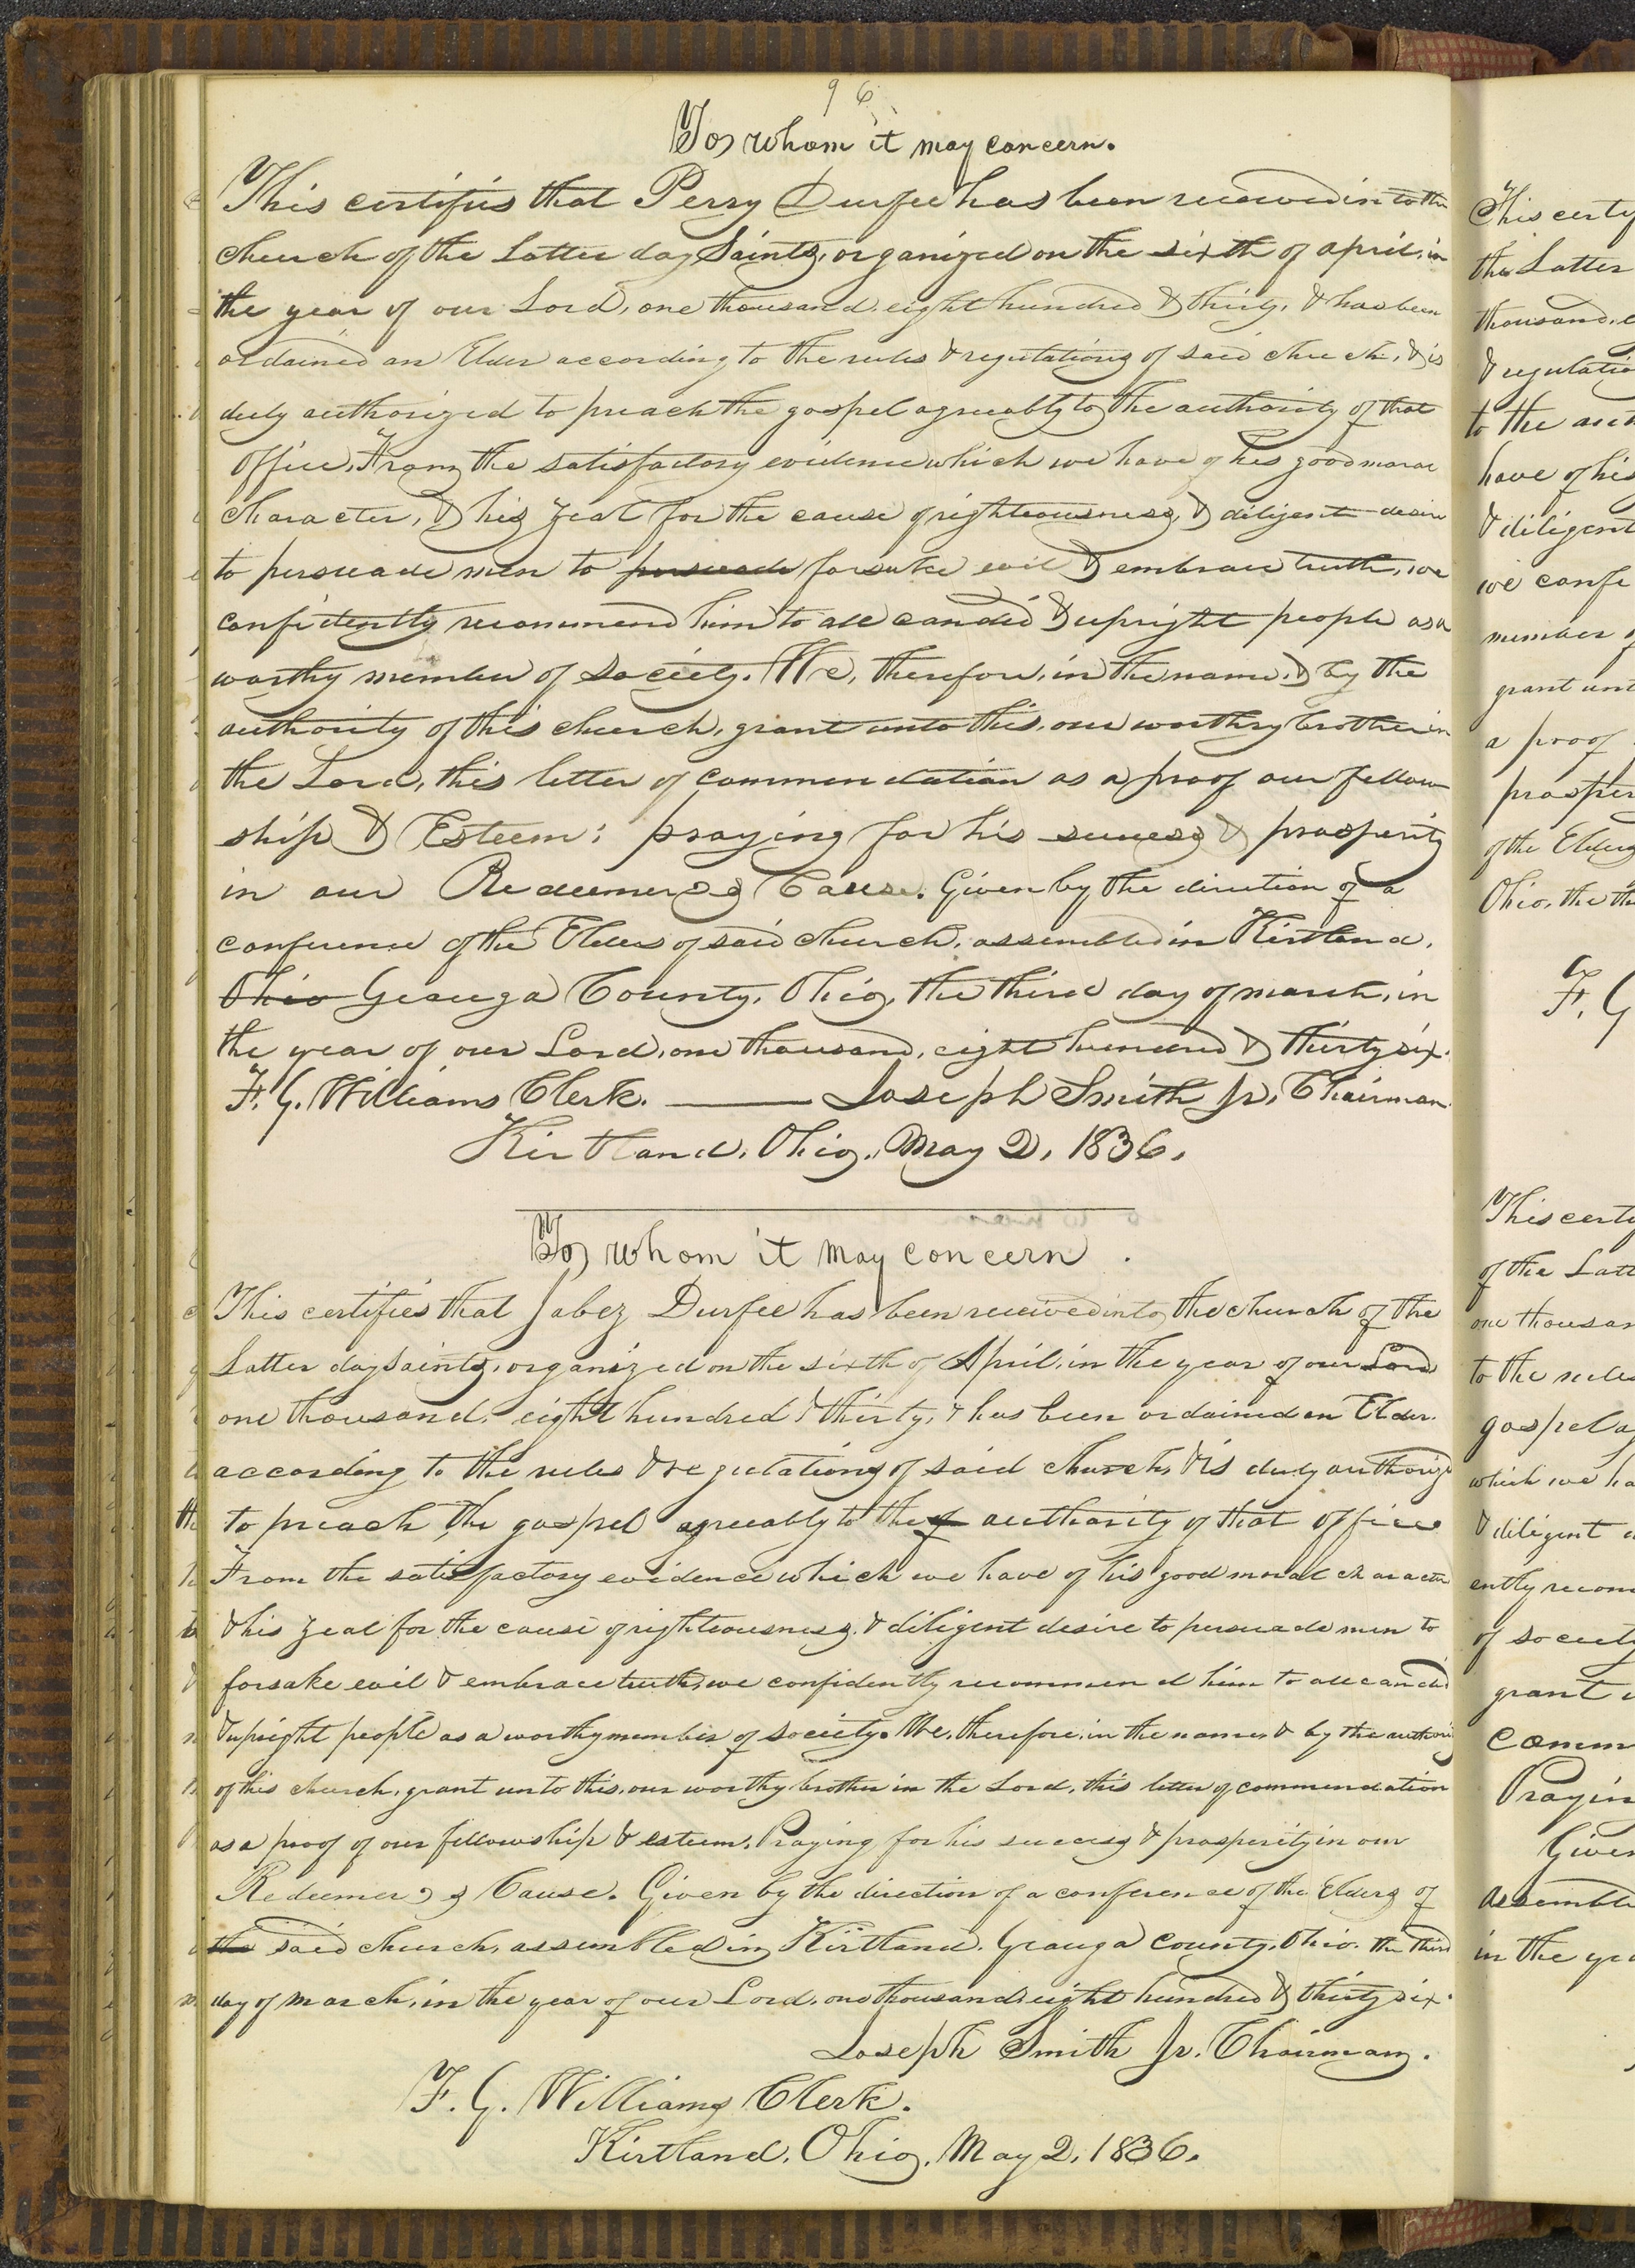 96
To whom it may concern.
This certifies that Perry Durfee has been received into the
church of the Latter day Saints, organized on the sixth of april, in
the year of our Lord, one thousand, eight hundred & thirty, & has been
ordained an Elder according to the rules & regulations of said church, & is
duly authorized to preach the gospel agreeably to the authority of that
office. From the satisfactory evidence which we have of his good moral
character, & his zeal for the cause of righteousness, & diligent desire
to persuade men to persuade forsake evil & embrace truth, we
confidently recommend him to all candid & upright people as a
worthy member of society. We, therefore, in the name, & by the
authority of this church, grant unto this, our worthy brother in
the Lord, this letter of commendation as a proof our fellow
ship & Esteem: praying for his success & prosperity
in our Redeemer's Cause. Given by the direction of a
conference of the Elders of said church, assembled in Kirtland,
Ohio Geauga County, Ohio, the third day of march, in
the year of our Lord, one thousand, eight hundred & thirty six.
F. G. Williams Clerk. Joseph Smith Jr. Chairman
Kirtland, Ohio, May 2, 1836.
To whom it may concern.
This certifies that Jabez Durfee has been received into the church of the
Latter day Saints, organized on the sixth of April, in the year of our Lord
one thousand, eight hundred & thirty, & has been ordained an Elder.
according to the rules & regulations of said church, & is duly authorize
to preach the gospel agreeably to the authority of that office
From the satisfactory evidence which we have of his good moral character
& his zeal for the cause of righteousness, & diligent desire to persuade men to
forsake evil & embrace truth, we confidently recommend him to all candid
& upright people as a worthy member of society. We, therefore, in the name, & by the authority
of this church, grant unto this, our worthy brother in the Lord, this letter of commendation
as a proof of our fellowship & esteem. Praying for his success & prosperity in our
Redeemer's Cause. Given by the direction of a conference of the Elders of
the said church, assembled in Kirtland, Geauga County, Ohio. the third
day of march, in the year of our Lord, one thousand, eight hundred & thirty six.
Joseph Smith Jr. Chairman.
F. G. Williams Clerk.
Kirtland, Ohio, May 2, 1836.
This certi
the Latter
thousand, e
& regulatio
to the aut
have of his
& diligent
we confi
member o
grant unt
a proof
prosper
of the Elders
Ohio, the th
F. G
This certi
of the Latt
one thousan
to the rules
gospel ag
which we ha
& diligent d
ently recom
of society
grant u
Comm
Prayin
Given
assemble
in the yea